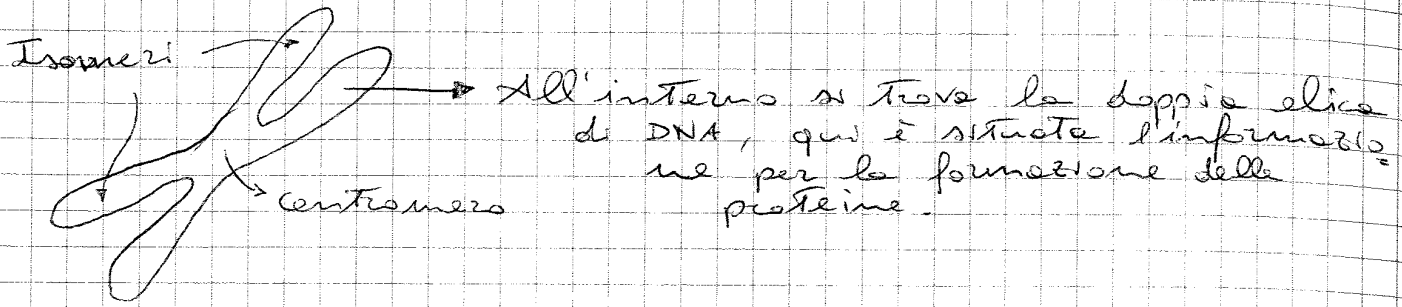 Isomeri
All'interno si trova la doppia elica
di DNA, qui è situata l'informazio=
ne per la formazione delle
proteine.
centromero